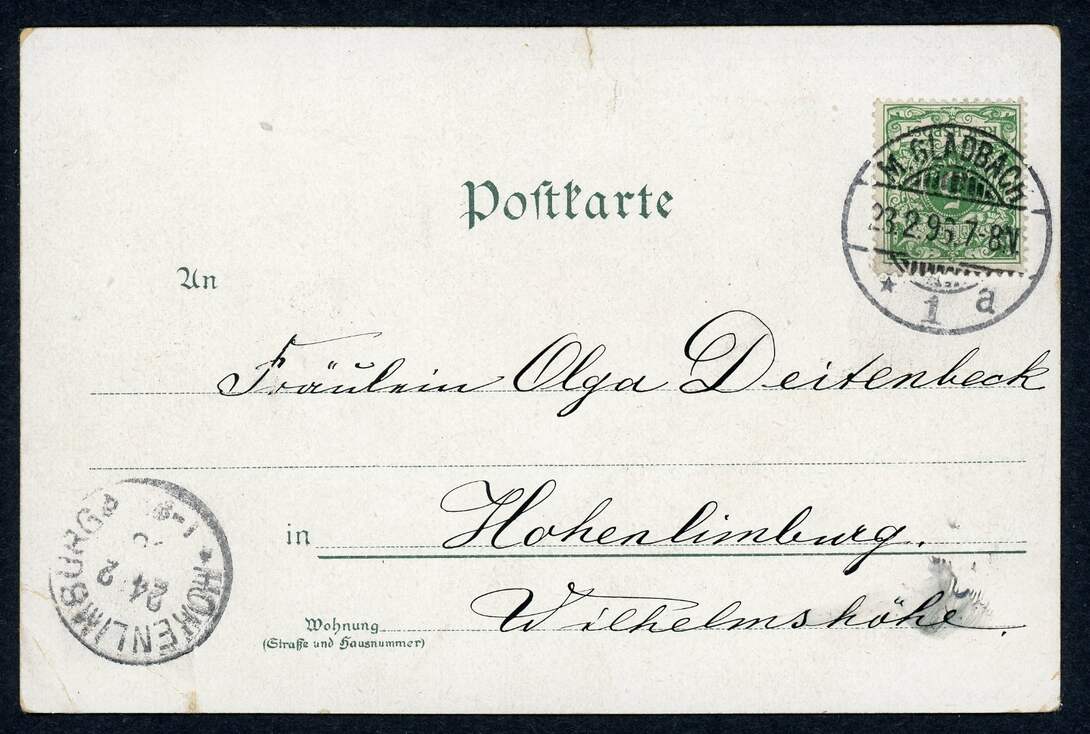 Postkarte
M. GLADBACH
23.2.95.7-8V.
* 1 a
An
Fräulein Olga Deitenbeck
in Hohenlimburg.
Wilhelmshöhe.
Wohnung
(Straße und Hausnummer)
* HOHENLIMBURG
24 2